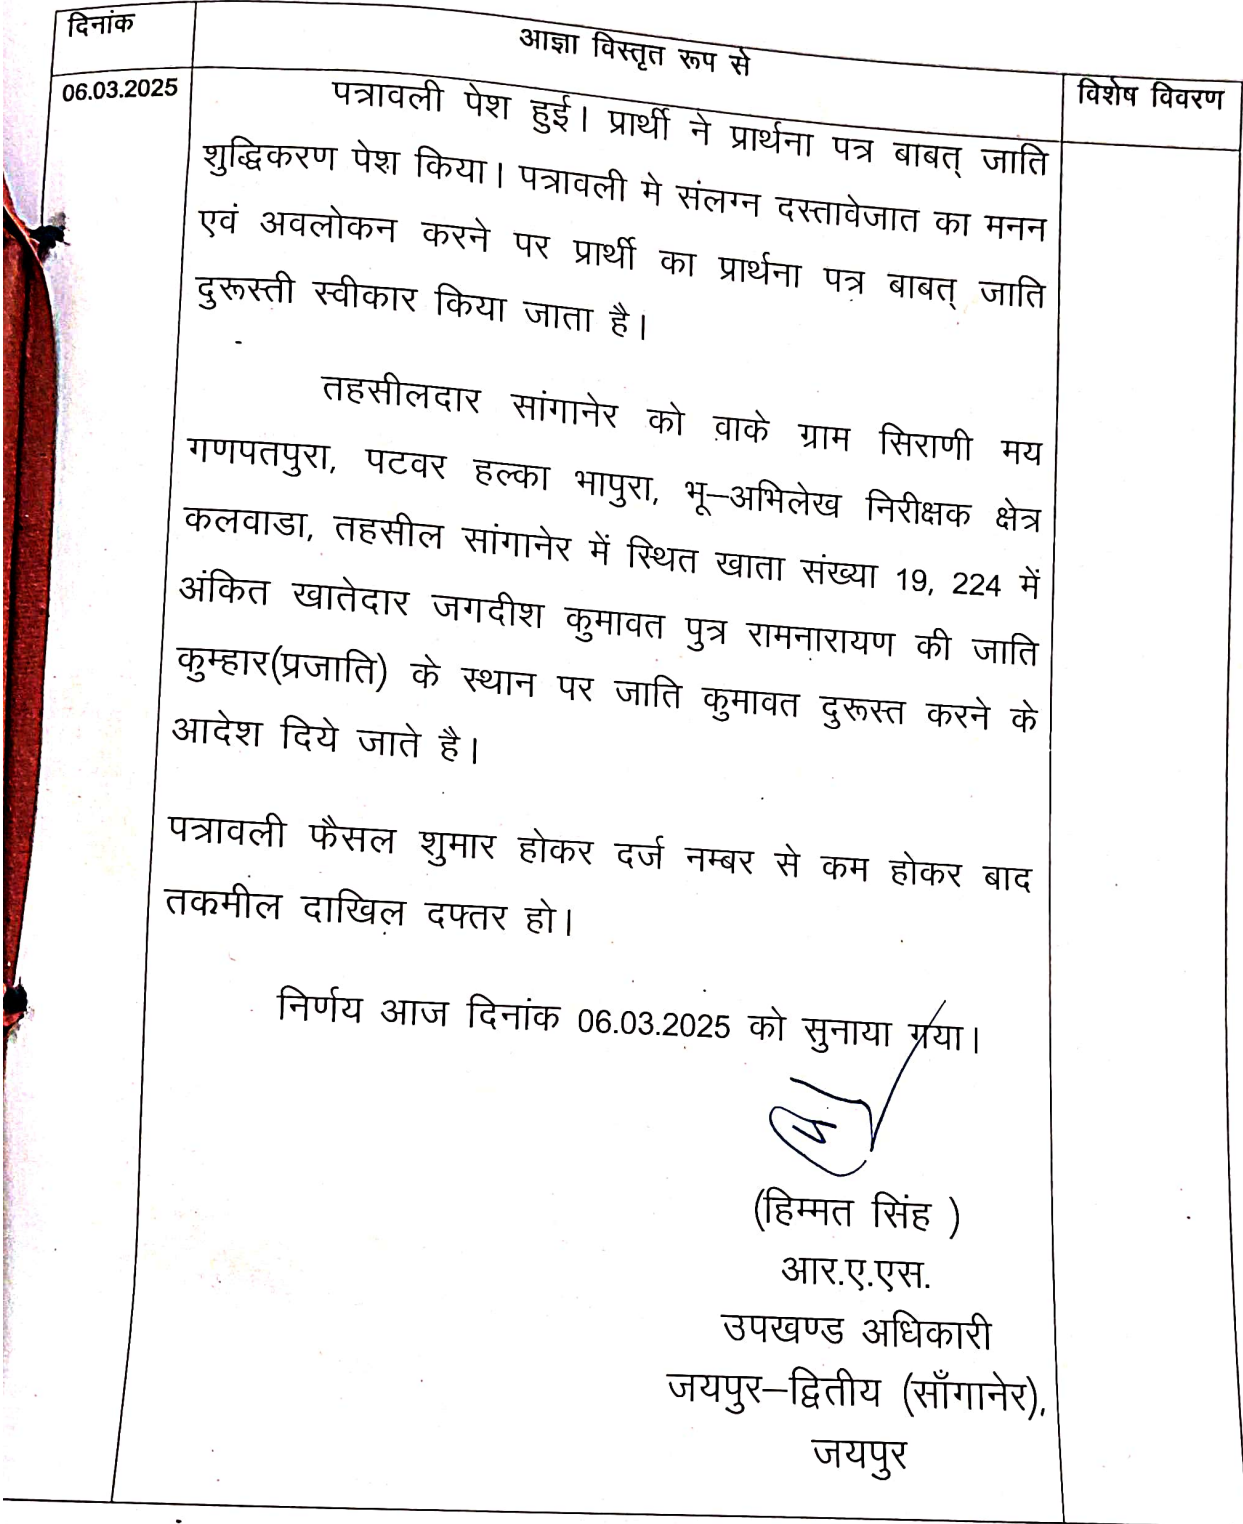 दिनांक
आज्ञा विस्तृत रूप से
विशेष विवरण
06.03.2025
पत्रावली पेश हुई। प्रार्थी ने प्रार्थना पत्र बाबत् जाति
शुद्धिकरण पेश किया। पत्रावली मे संलग्न दस्तावेजात का मनन
एवं अवलोकन करने पर प्रार्थी का प्रार्थना पत्र बाबत् जाति
दुरूस्ती स्वीकार किया जाता है।
तहसीलदार सांगानेर को वाके ग्राम सिराणी मय
गणपतपुरा, पटवर हल्का भापुरा, भू–अभिलेख निरीक्षक क्षेत्र
कलवाडा, तहसील सांगानेर में स्थित खाता संख्या 19, 224 में
अंकित खातेदार जगदीश कुमावत पुत्र रामनारायण की जाति
कुम्हार(प्रजाति) के स्थान पर जाति कुमावत दुरूस्त करने के
आदेश दिये जाते है।
पत्रावली फैसल शुमार होकर दर्ज नम्बर से कम होकर बाद
तकमील दाखिल दफ्तर हो।
निर्णय आज दिनांक 06.03.2025 को सुनाया गया।
(हिम्मत सिंह )
आर.ए.एस.
उपखण्ड अधिकारी
जयपुर–द्वितीय (साँगानेर),
जयपुर